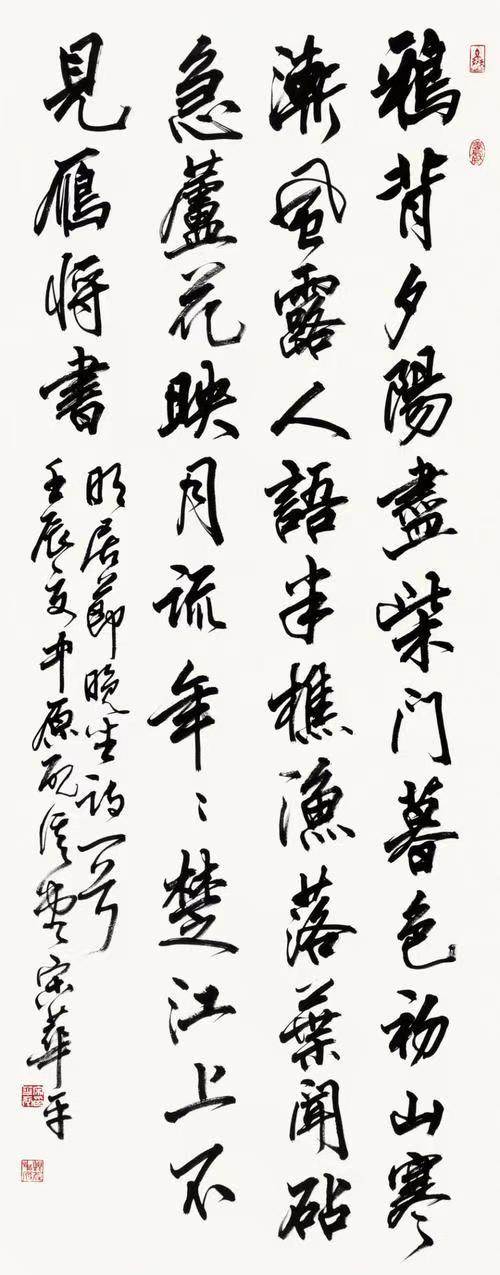 鴉背夕陽盡柴門暮色初山寒
漸風露人語半樵漁落葉聞砧
急蘆花映月疏年〻楚江上不
見雁將書
明居節晚坐詩一首
壬辰夏中原硯溪宋華平